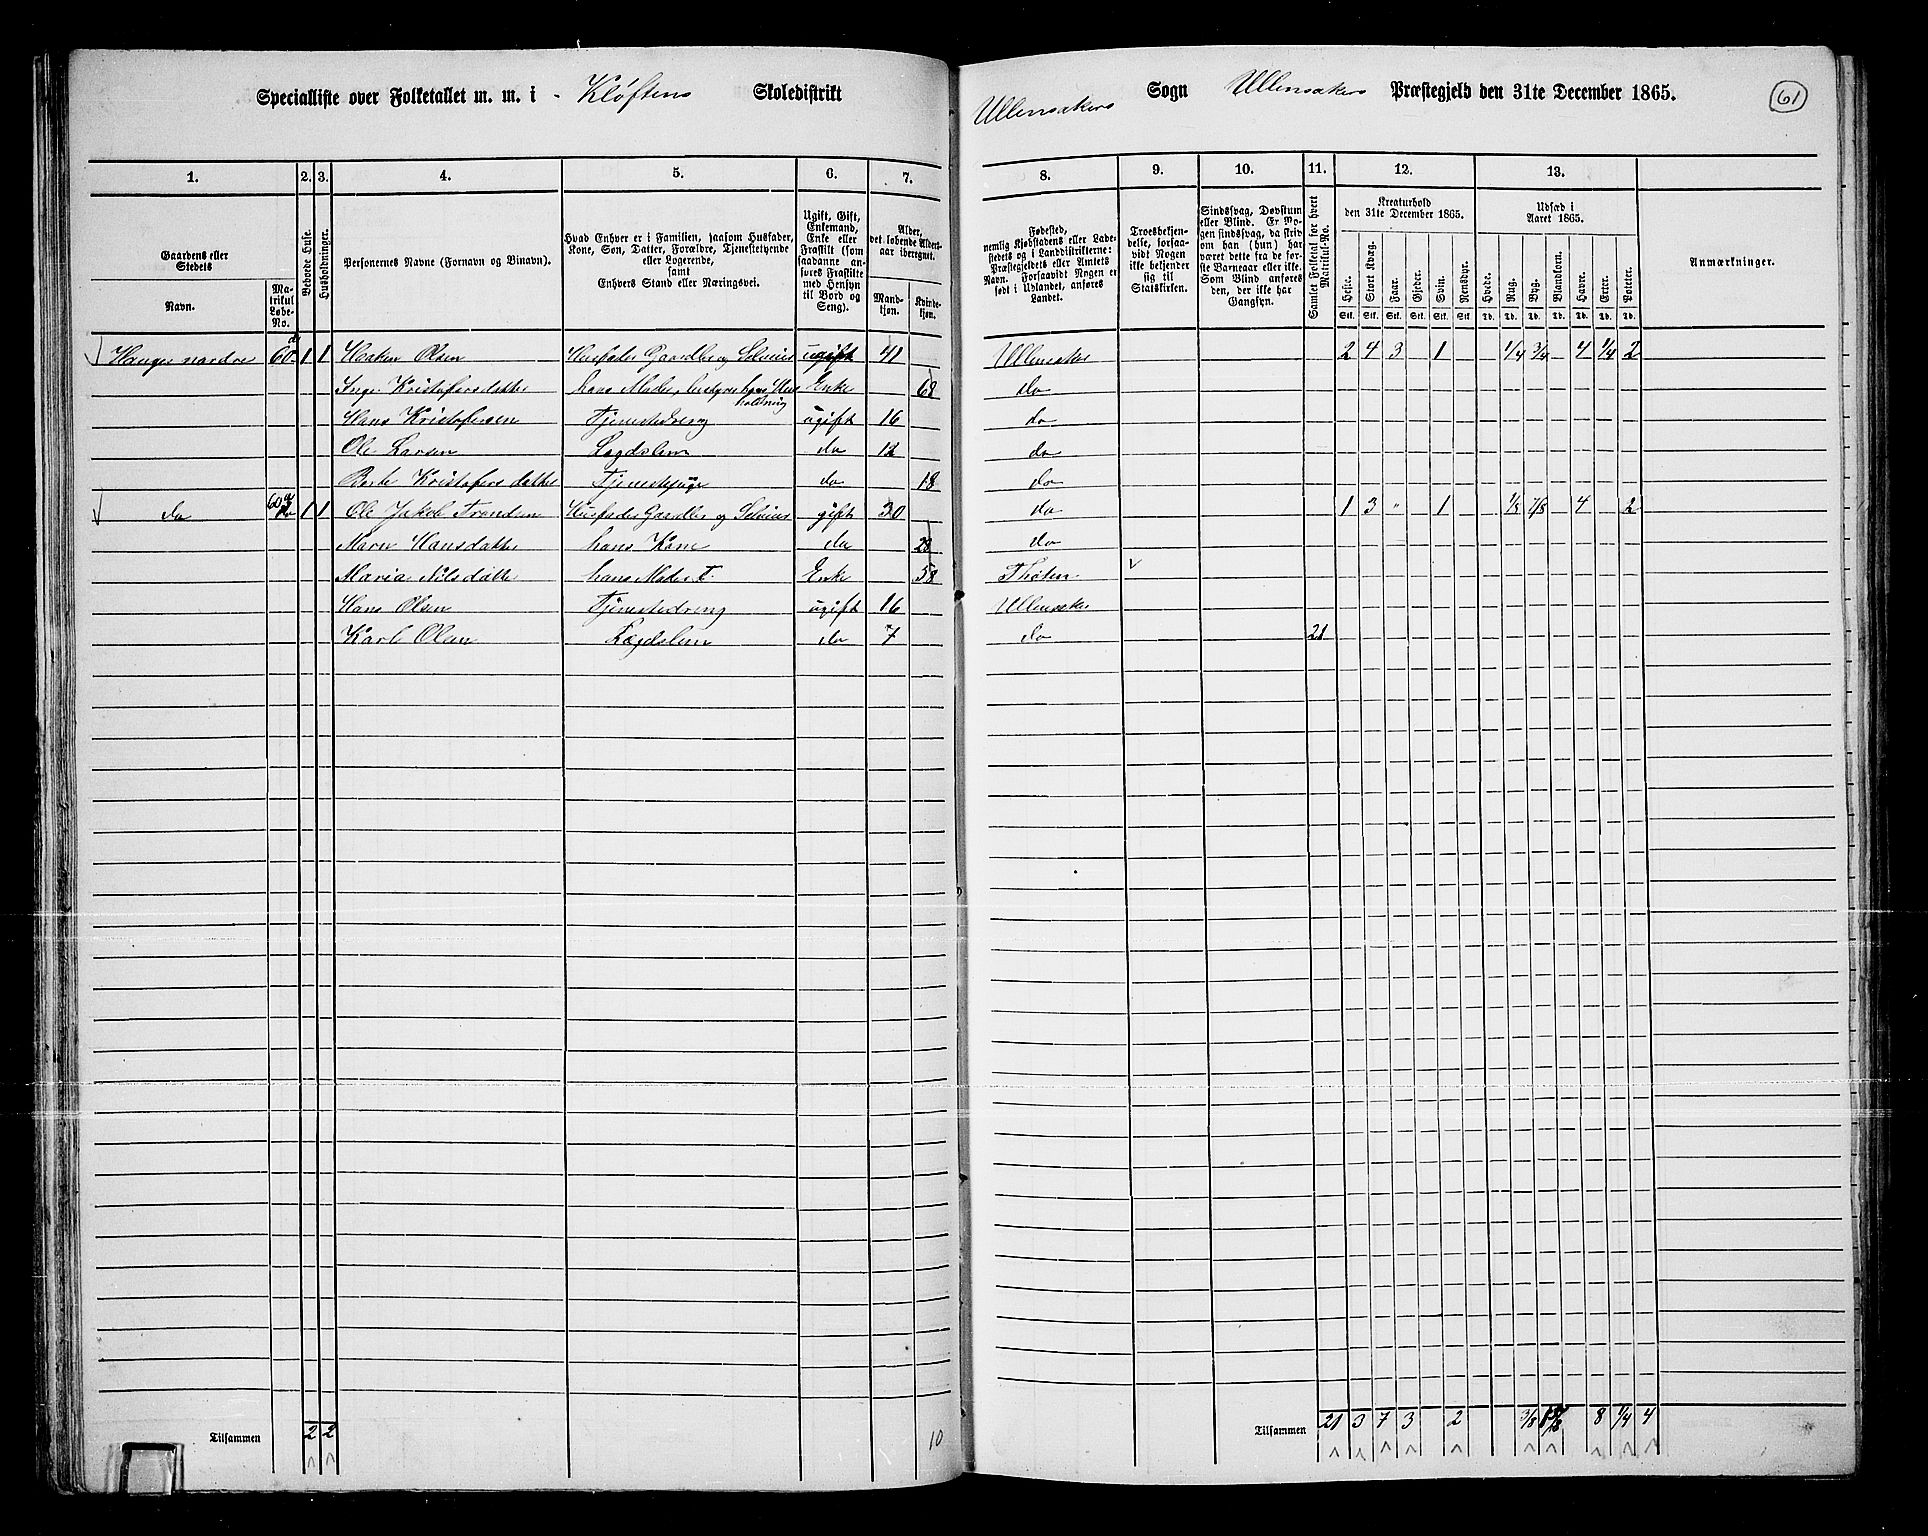 Specialliste over Folketallet m. m. i Kløftens Skoledistrikt
Ullensakers Sogn Ullensakers Præstegjeld den 31te December 1865.
61
1. 2. 3. 4. 5. 6. 7. 8. 9. 10. 11. 12. 13.
Gaardens eller Stedets
Navn.
Matrikul Løbe-No.
Beboede Huse.
Husholdninger.
Personernes Navne (Fornavn og Binavn).
Hvad Enhver er i Familien, saasom Husfader, Kone, Søn, Datter, Forældre, Tjenestetyende eller Logerende,
samt
Enhvers Stand eller Næringsvei.
Ugift, Gift, Enkemand, Enke eller Fraskilt (som saadanne anføres Fraskilte med Hensyn til Bord og Seng).
Alder, det løbende Aldersaar iberegnet.
Mandkjøn.
Kvindekjøn.
Fødested,
nemlig Kjøbstadens eller Ladestedets og i Landdistrikterne: Præstegjeldets eller Amtets Navn. Forsaavidt Nogen er født i Udlandet, anføres Landet.
Troesbekjendelse, forsaavidt Nogen ikke bekjender sig til Statskirken.
Sindssvag, Døvstum eller Blind. Er Nogen sindssvag, da skriv om han (hun) har været dette fra de første Barneaar eller ikke. Som Blind anføres den, der ikke har Gangsyn.
Samlet Folketal for hvert Matrikul-No.
Kreaturhold
den 31te December 1865.
Heste. Stort Kvæg. Faar. Gjeder. Svin. Rensdyr.
Stk. Stk. Stk. Stk. Stk. Stk.
Udsæd i
Aaret 1865.
Hvede. Rug. Byg. Blandkorn. Havre. Erter. Poteter.
Td. Td. Td. Td. Td. Td. Td.
Anmærkninger.
Hauger nordre 60 1 1 Haaken Olsen Husfader Gaardbr og Selveier ugift 41 Ullensaker 2 4 3 1 1/4 3/4 4 1/4 2
Inge Kristofersdatter hans Moder, bestyrer hans Husholdning Enke 68 do
Hans Kristofersen Tjenestedreng ugift 16 do
Ole Larsen Lægdslem do 12 do
Berte Kristofersdatter Tjenestepige do 18 do
do 60 1 1 Ole Jakob Trondsen Husfader Gaardbr og Selveier gift 30 do 1 3 " 1 1/8 7/8 4 2
Maren Hansdatter hans Kone do 28 do
Maria Nilsdatter hans Moder Enke 58 Thoten
Hans Olsen Tjenestedreng ugift 16 Ullensaker
Karl Olsen Lægdslem do 7 do 21
Tilsammen 2 2 10
Tilsammen 21 3 7 3 2 3/8 8 1/4 4